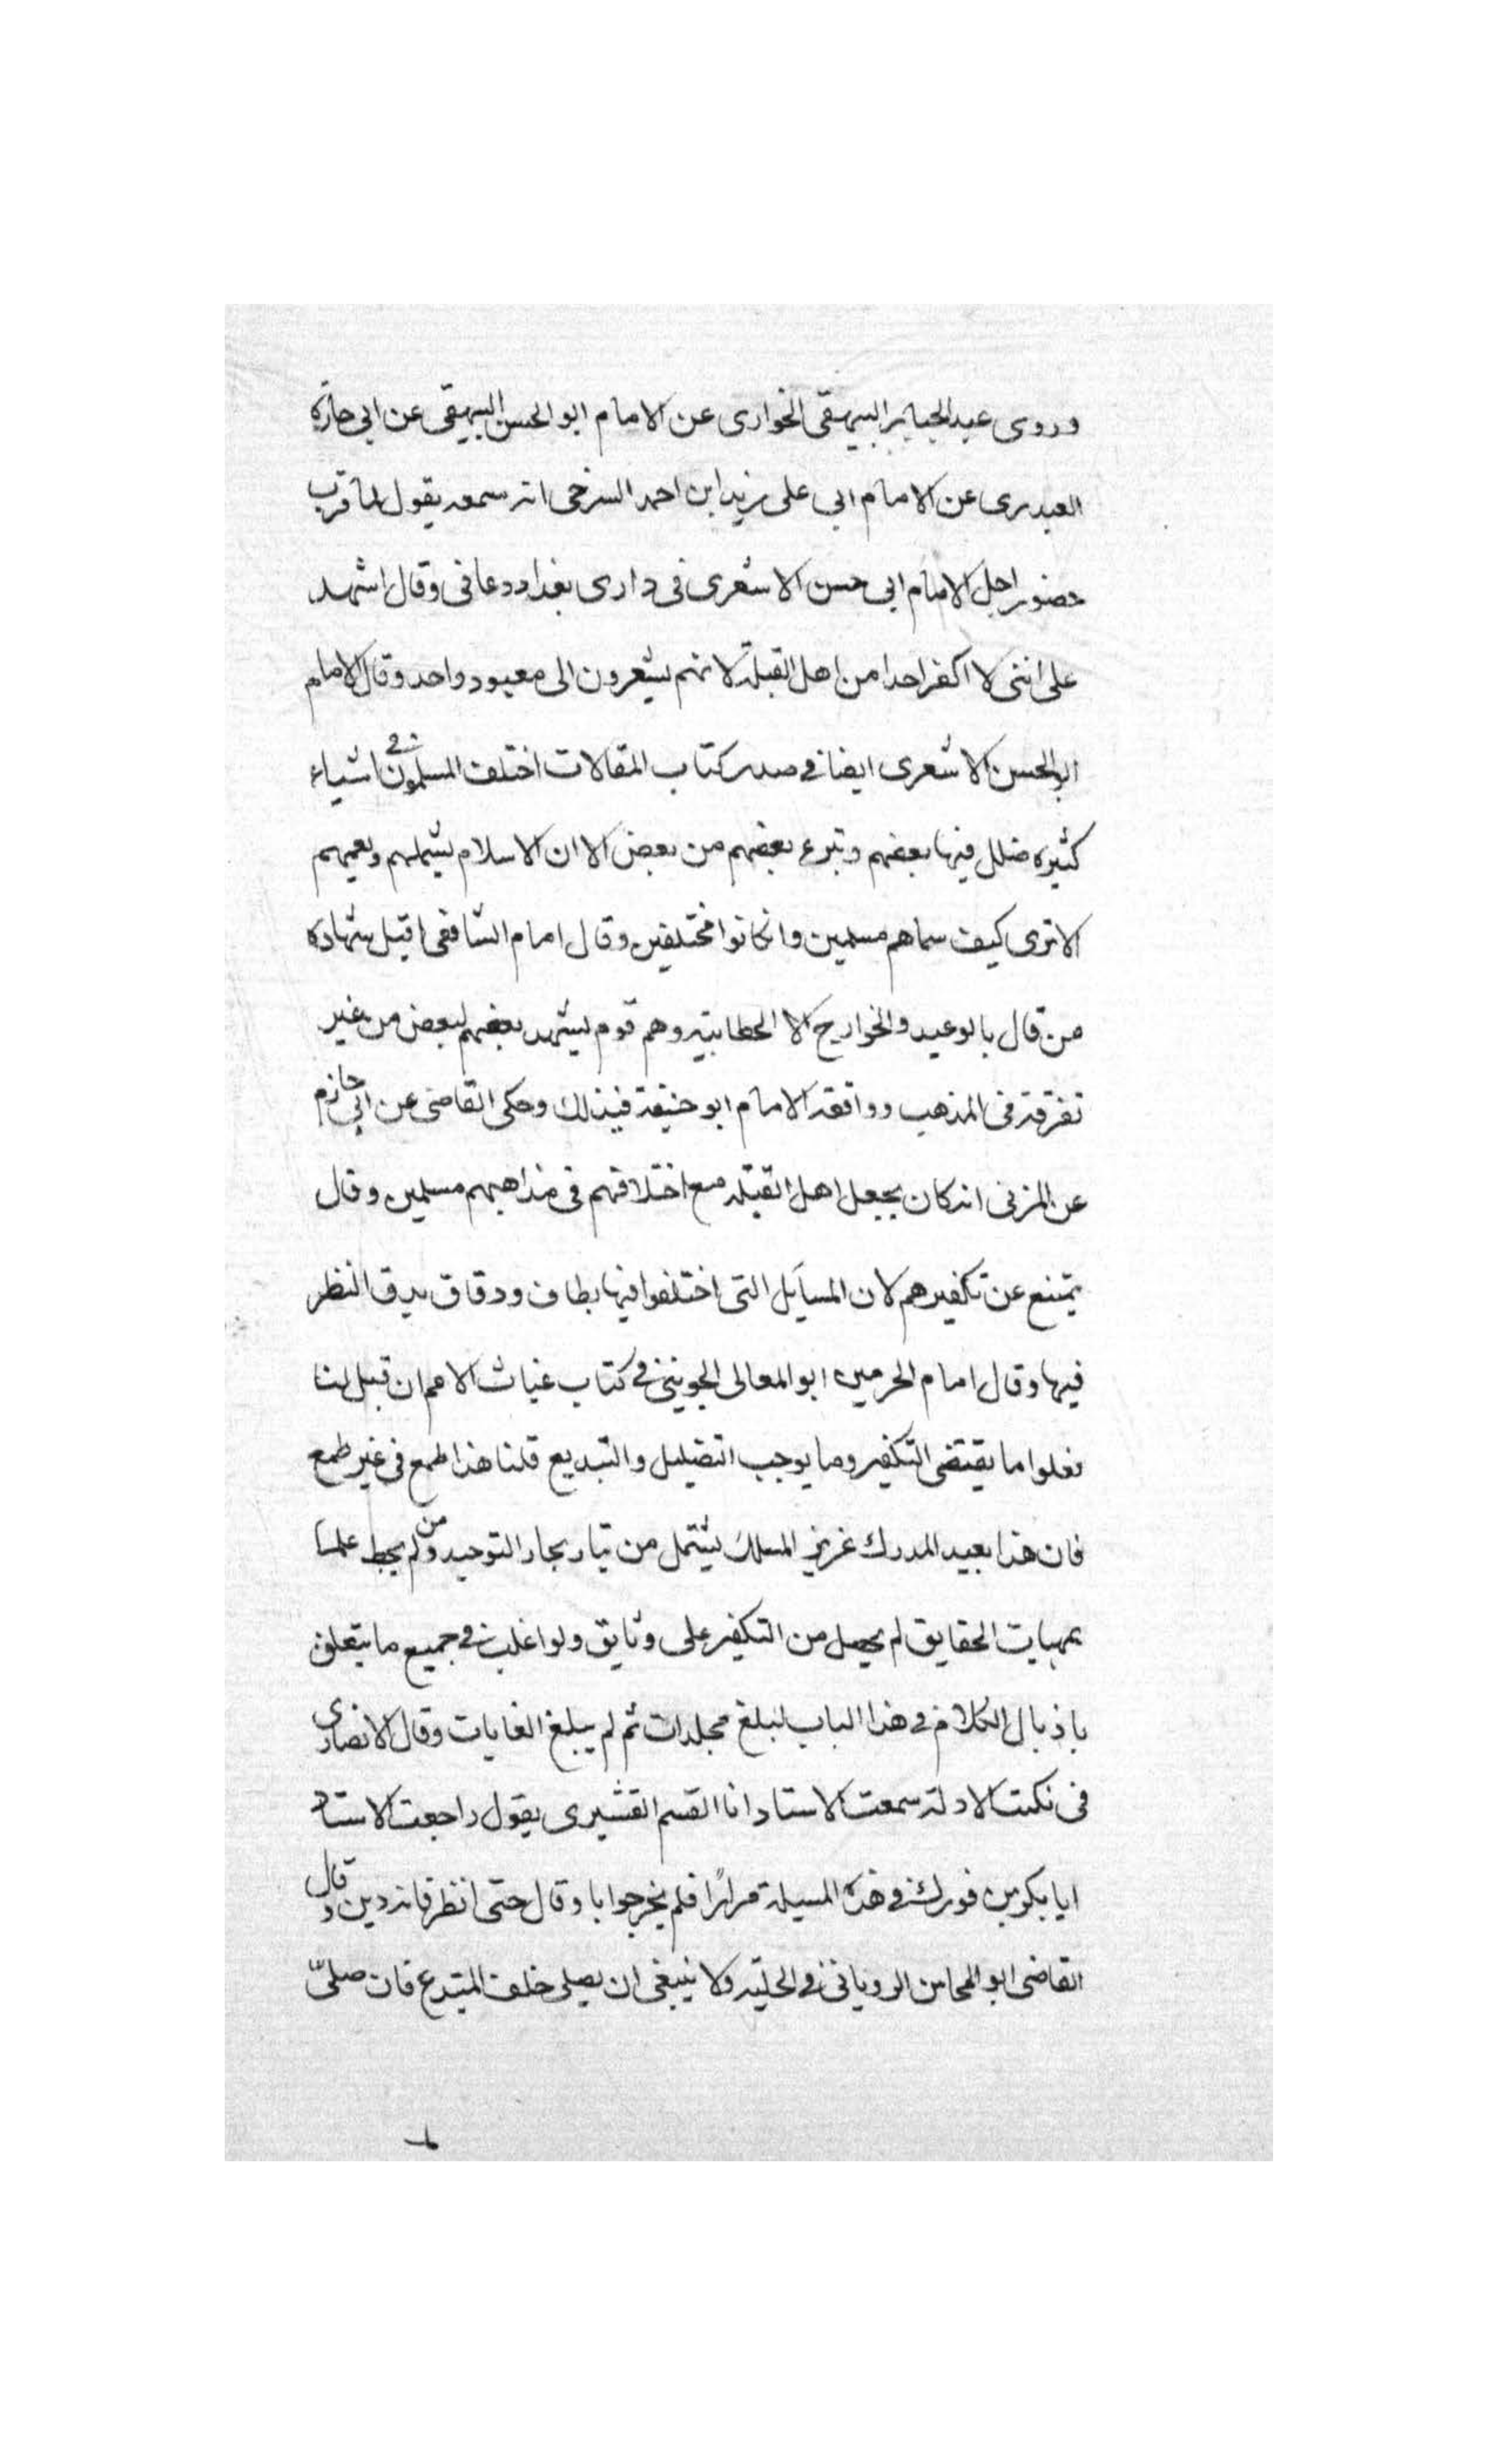 وروى عبد الجبابر البيهقى الخوارى عن الامام ابو الحسن البيهقى عن ابى حازه
العبدرى عن الامام ابى على يزيد ابن احمد السرخى انه سمعه يقول لما قرب
حضور اجل الامام ابى حسن الاشعرى فى دارى بغداد دعانى وقال اشهد
على اننى لا اكفر احدا من اهل القبلة لانهم يشعرون الى معبود واحد وقال الامام
ابو الحسن الاشعرى ايضا فى صدر كتاب المقالات اختلف المسلمون فى اشياء
كثيره ضلل فيها بعضهم وتبرء بعضهم من بعض الا ان الاسلام يشملهم ويعمهم
الا ترى كيف سماهم مسلمين وانكانوا مختلفين وقال امام الشافعى اقبل شهاده
من قال بالوعيد والخوارج الا الحطابيه وهم قوم يشهد بعضهم لبعض من غير
تفرقة فى المذهب ووافقه الامام ابو حنيفة فيذلك وحكى القاضى عن ابى حازم
عن المزنى انه كان يجعل اهل القبله مع اختلافهم فى مذاهبهم مسلمين وقال
يمتنع عن تكفيرهم لان المسآيل التى اختلفوا فيها بطاف ودقاق يدق النظر
فيها وقال امام الحرمين ابو المعالى الجوينى فى كتاب غياث الامم ان قيل لنا
نغلوا ما يقتضى التكفير وما يوجب التضليل والتبديع قلنا هذا طمع فى غير طمع
فان هذا بعيد المدرك غريز المسلك يشتمل من تيار بحار التوحيد ومن لم يحط علما
بمهيات الحقايق لم يحصل من التكفير على وثايق ولو اغلب فى جميع ما يتعلق
باذبال الكلام فى هذا الباب لبلغ مجلدات ثم لم يبلغ الغايات وقال الانصارى
فى نكت الادلة سمعت الاستاد انا القسم القشيرى يقول راجعت الاستاد
ابا بكر بن فورك فى هذه المسيلة مرارًا فلم يخبر جوابا وقال حتى انظر فانه دين وقال
القاضى ابو المحاسن الرويانى فى الحليه ولا ينبغى ان يصلى خلف المبتدع فان صلىّ